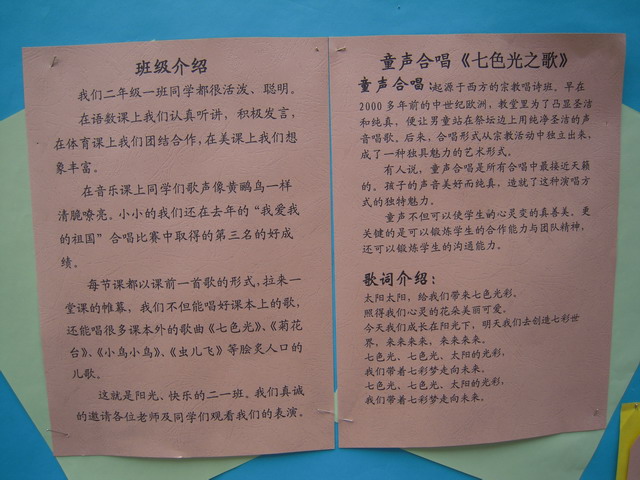 班级介绍
我们二年级一班同学都很活泼、聪明。
在语数课上我们认真听讲，积极发言，
在体育课上我们团结合作，在美课上我们想
象丰富。
在音乐课上同学们歌声像黄鹂鸟一样
清脆嘹亮。小小的我们还在去年的“我爱我
的祖国”合唱比赛中取得的第三名的好成
绩。
每节课都以课前一首歌的形式，拉来一
堂课的帷幕，我们不但能唱好课本上的歌，
还能唱很多课本外的歌曲《七色光》、《菊花
台》、《小鸟小鸟》、《虫儿飞》等脍炙人口的
儿歌。
这就是阳光、快乐的二一班。我们真诚
的邀请各位老师及同学们观看我们的表演。
童声合唱《七色光之歌》
童声合唱：起源于西方的宗教唱诗班。早在
2000多年前的中世纪欧洲，教堂里为了凸显圣洁
和纯真，便让男童站在祭坛边上用纯净圣洁的声
音唱歌。后来，合唱形式从宗教活动中独立出来，
成了一种独具魅力的艺术形式。
有人说，童声合唱是所有合唱中最接近天籁
的。孩子的声音美好而纯真，造就了这种演唱方
式的独特魅力。
童声不但可以使学生的心灵变的真善美。更
关键的是可以锻炼学生的合作能力与团队精神，
还可以锻炼学生的沟通能力。
歌词介绍：
太阳太阳，给我们带来七色光彩，
照得我们心灵的花朵美丽可爱。
今天我们成长在阳光下，明天我们去创造七彩世
界，来来来来，来来来来。
七色光、七色光、太阳的光彩，
我们带着七彩梦走向未来，
七色光、七色光、太阳的光彩，
我们带着七彩梦走向未来。